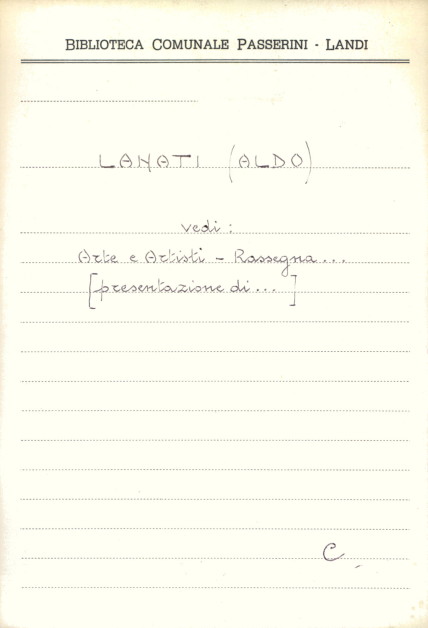 BIBLIOTECA COMUNALE PASSERINI - LANDI
LANATI (ALDO)
vedi :
Arte e Artisti - Rassegna ...
[presentazione di ... ]
C